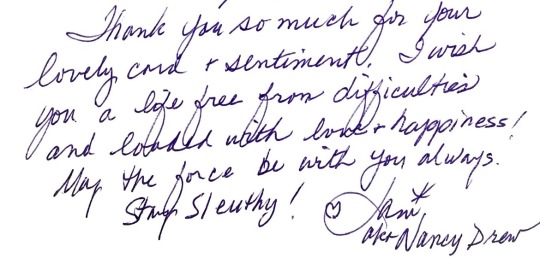 Thank you so much for your
lovely card + sentiment. I wish
you a life free from difficulties
and loaded with love + happiness!
May the force be with you always.
Stay Sleuthy! ♡ Jan*
aka Nancy Drew